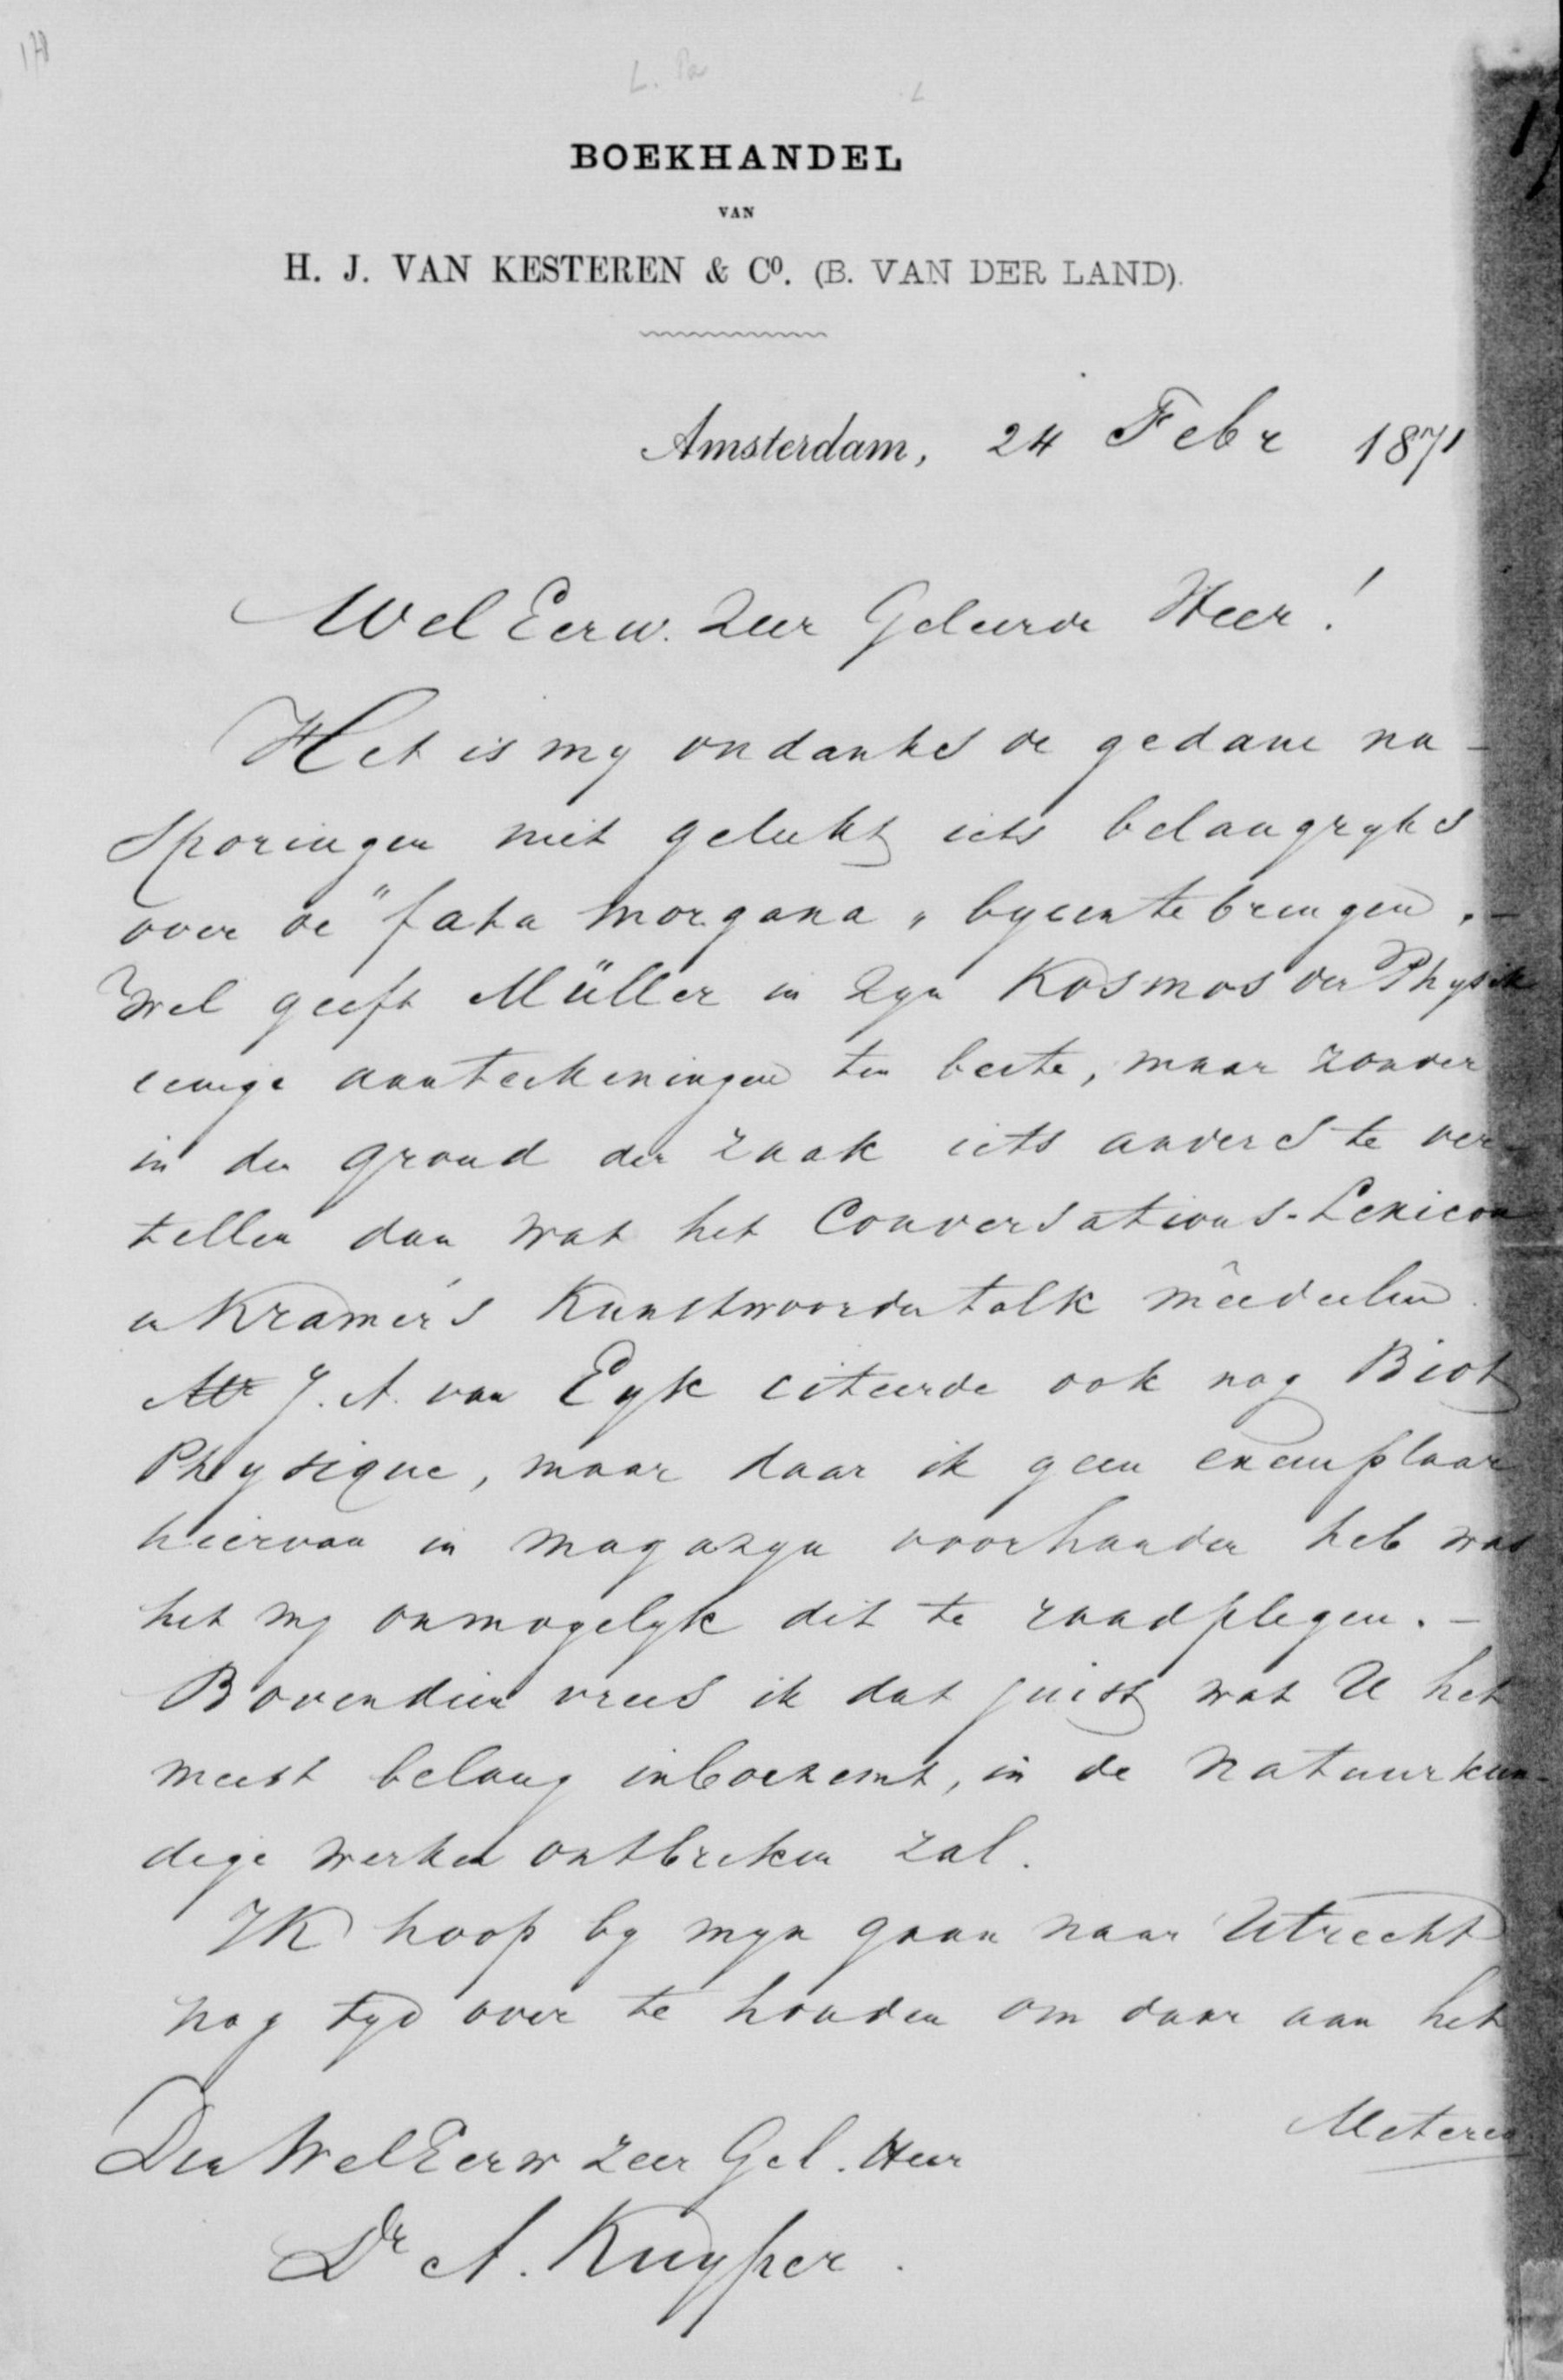 BOEKHANDEL
VAN
H. J. VAN KESTEREN & Co. (B. VAN DER LAND).
Amsterdam, 24 Febr 1871
WelEerw. Zeer Geleerde Heer!
Het is my ondanks de gedane na-
sporingen niet gelukt iets belangryks
over de "fata morgana" byeentebrengen. -
Wel geeft Müller in zyn Kosmos der Physik
eenige aanteekeningen ten beste, maar zonder
in den grond der zaak iets anders te ver-
tellen dan wat het Conversations-Lexicon
en Kramer's Kunstwoordentolk meêdeelen.
Mr J. A. van Eyk citeerde ook nog Biot
Physique, maar daar ik geen exemplaar
hiervan in magazyn voorhanden heb was
het my onmogelyk dit te raadplegen. -
Bovendien vrees ik dat juist wat U het
meest belang inboezemt, in de natuurkun-
dige werken ontbreken zal.
IK hoop by myn gaan naar Utrecht
nog tyd over te houden om daar aan het
Metereo
Den WelEerw zeer Gel. Heer
Dr A. Kuyper.